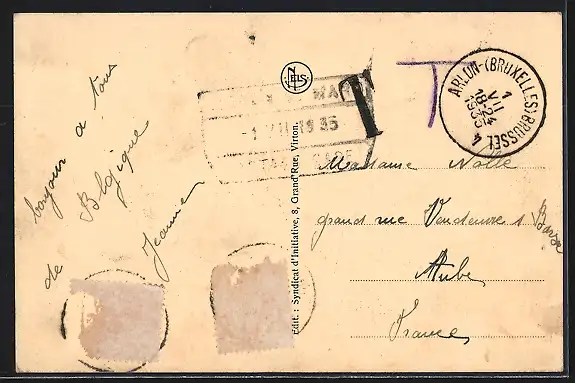 bonjour a tous
de Belgique
Jeanne
NELS
-1 VII 1935
T
T
ARLON-(BRUXELLES) BRUSSEL 4
1
VII 24
1935
Édit.: Syndicat d'Initiative, 8, Grand'Rue, Virton.
Madame Nolle
grand rue Vendeuvre s Barse
Aube
France